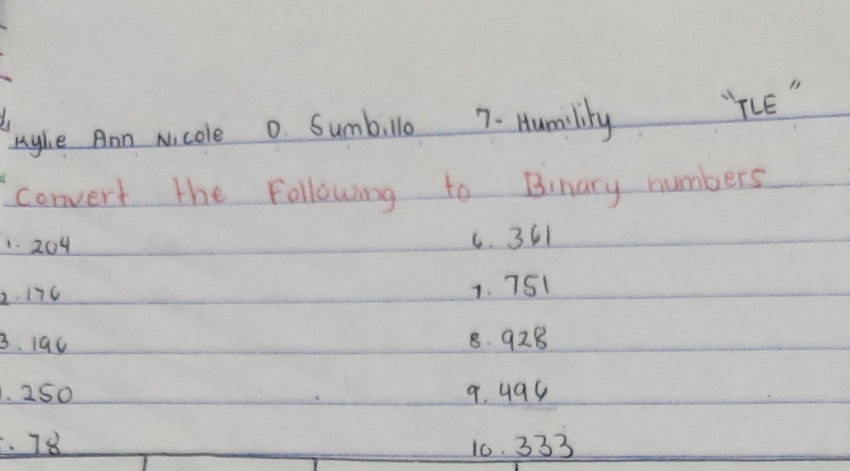 Kylie Ann Nicole D. Sumbillo 7- Humility "TLE"
Convert the Following to Binary numbers
1. 204 6. 361
2. 176 7. 751
3. 196 8. 928
. 250 9. 496
. 78 10. 333